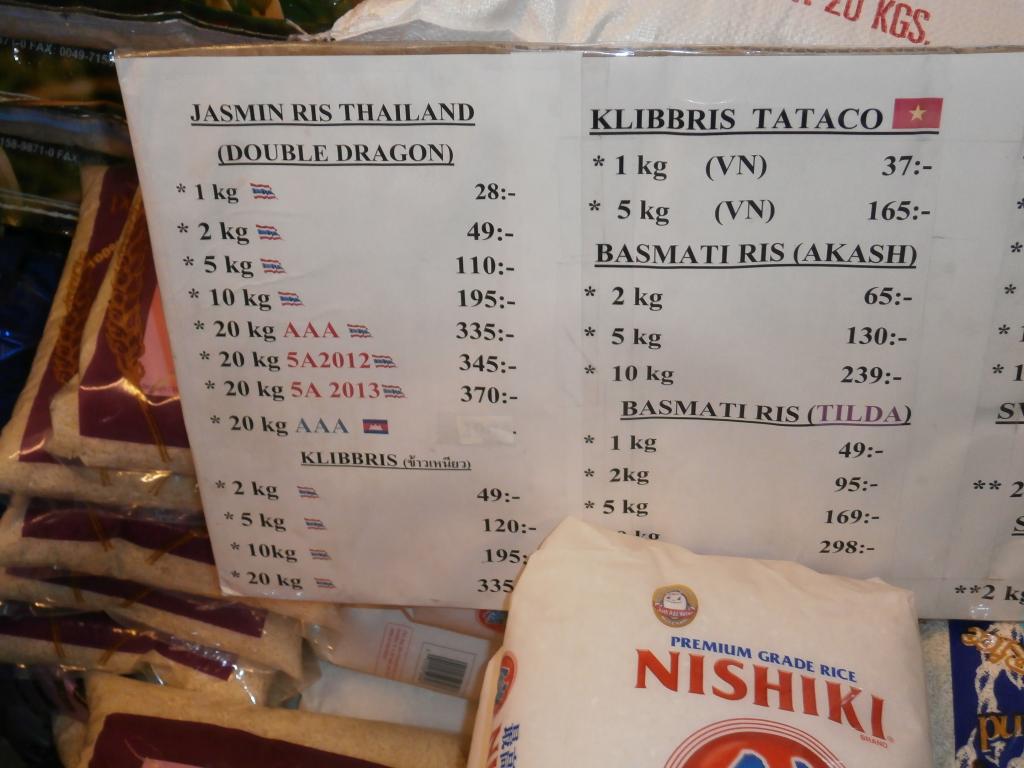 20 KGS.
JASMIN RIS THAILAND
(DOUBLE DRAGON)
* 1 kg 28:-
* 2 kg 49:-
* 5 kg 110:-
* 10 kg 195:-
* 20 kg AAA 335:-
* 20 kg 5A2012 345:-
* 20 kg 5A 2013 370:-
* 20 kg AAA
KLIBBRIS (ข้าวเหนียว)
* 2 kg 49:-
* 5 kg 120:-
* 10kg 195:
* 20 kg 335
KLIBBRIS TATACO
* 1 kg (VN) 37:-
* 5 kg (VN) 165:-
BASMATI RIS (AKASH)
* 2 kg 65:-
* 5 kg 130:-
* 10 kg 239:-
BASMATI RIS (TILDA)
* 1 kg 49:-
* 2kg 95:-
* 5 kg 169:-
kg 298:-
** 2
**2 kg
PREMIUM GRADE RICE
NISHIKI
BRAND
最高